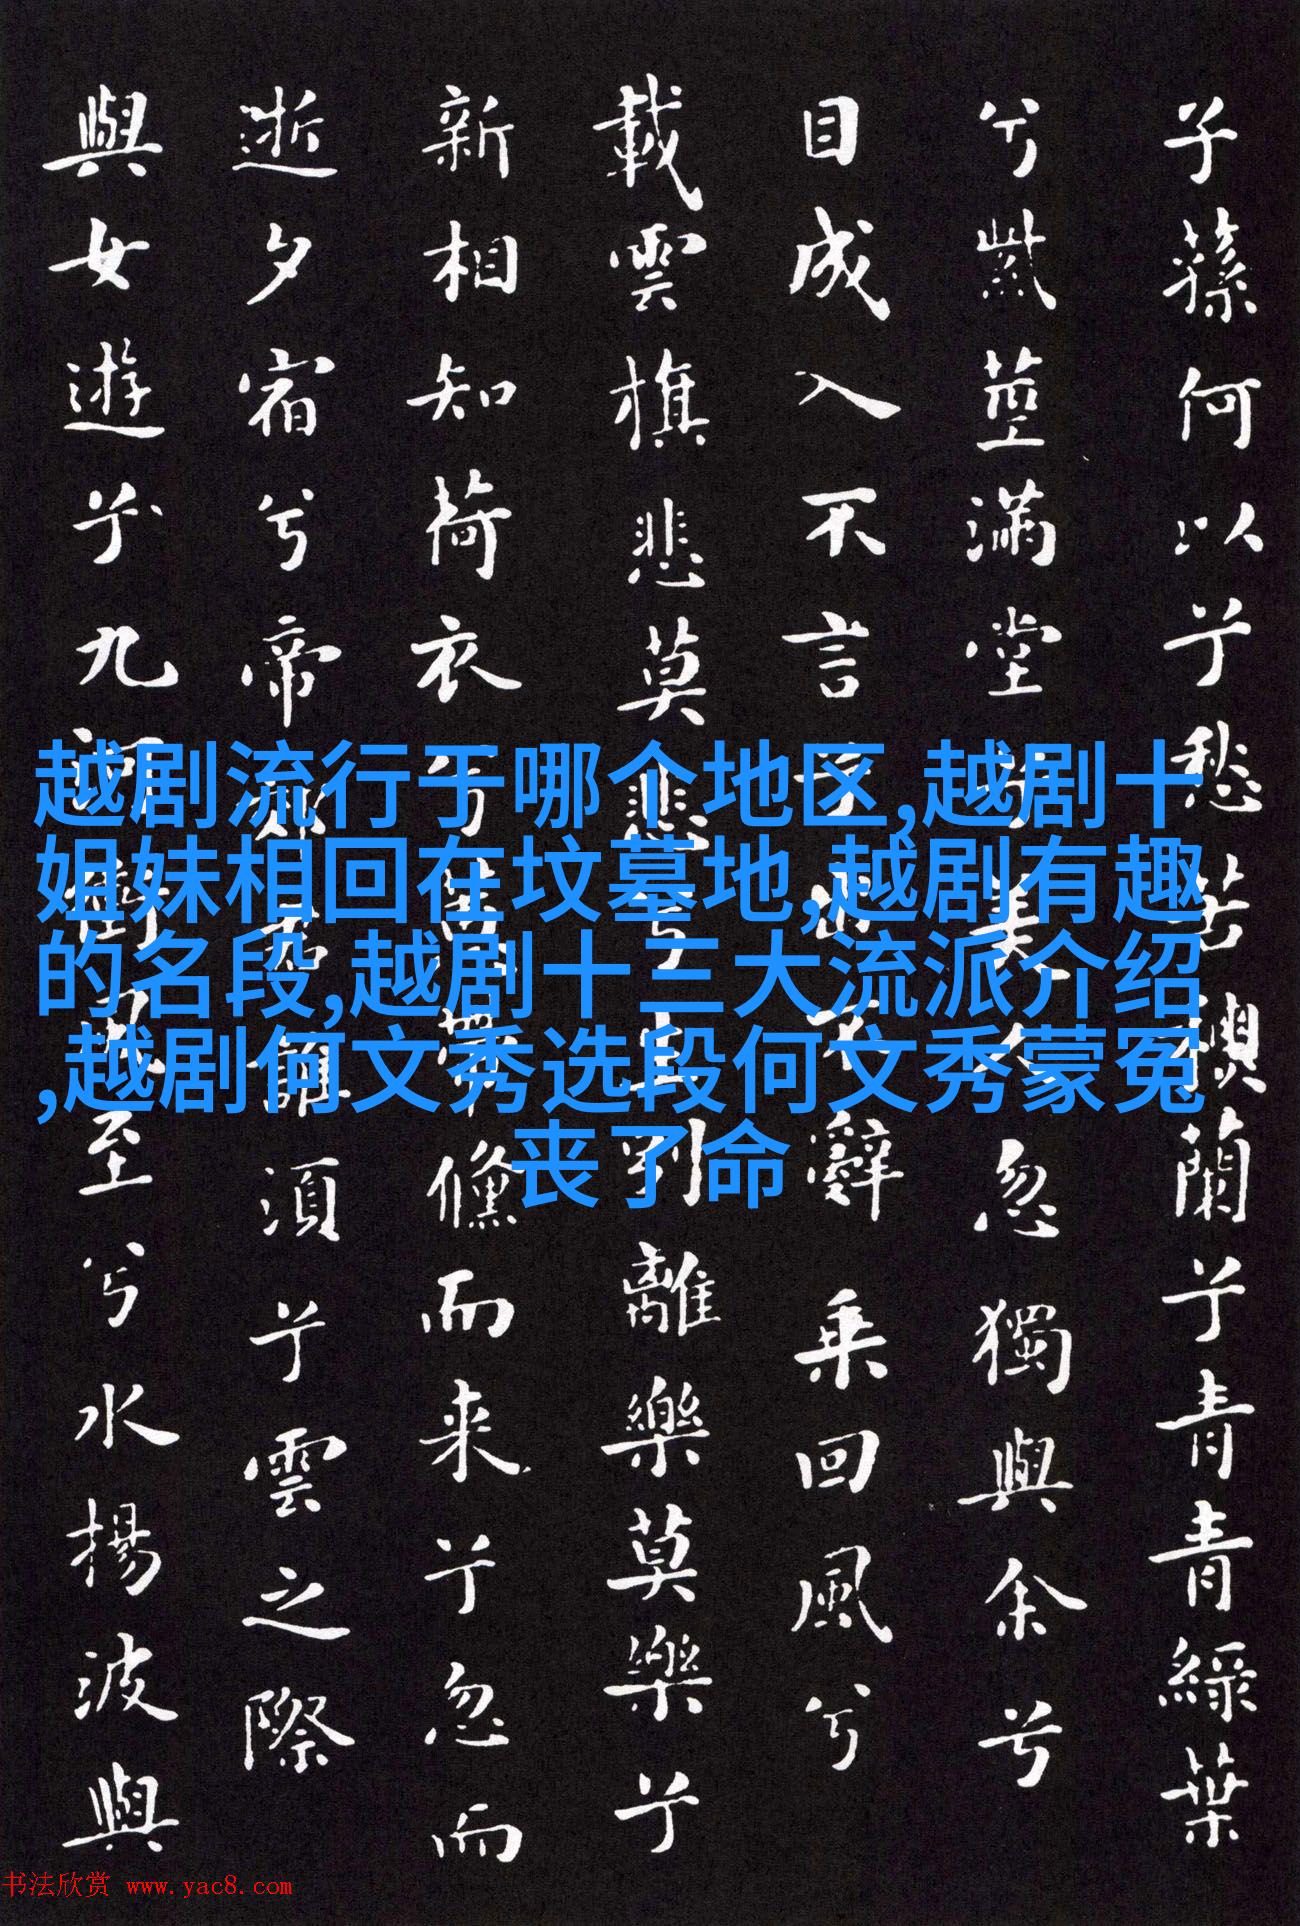 子蓀何以兮愁苦蘭兮青青綠葉
兮紫莖滿堂兮美人忽獨與余兮
目成入不言兮出不辭乘回風兮
載雲旗悲莫悲兮生別離樂莫樂兮
新相知荷衣兮蕙帶儵而来兮忽而
逝夕宿兮帝郊君誰須兮雲之際
與女遊兮九河衝風至兮水揚波與
越剧流行于哪个地区,越剧十
姐妹相回在坟墓地,越剧有趣
的名段,越剧十三大流派介绍
,越剧何文秀选段何文秀蒙冤
丧了命
书法欣赏 www.yac8.com